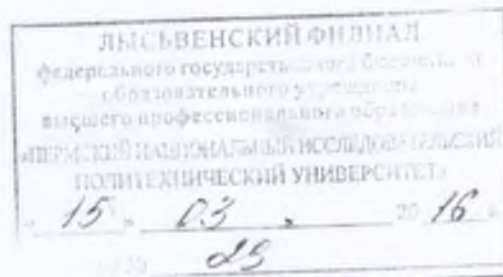 ЛЫСЬВЕНСКИЙ ФИЛИАЛ
федерального государственного бюджетного
образовательного учреждения
высшего профессионального образования
«ПЕРМСКИЙ НАЦИОНАЛЬНЫЙ ИССЛЕДОВАТЕЛЬСКИЙ
ПОЛИТЕХНИЧЕСКИЙ УНИВЕРСИТЕТ»
« 15 » 03 2016
29